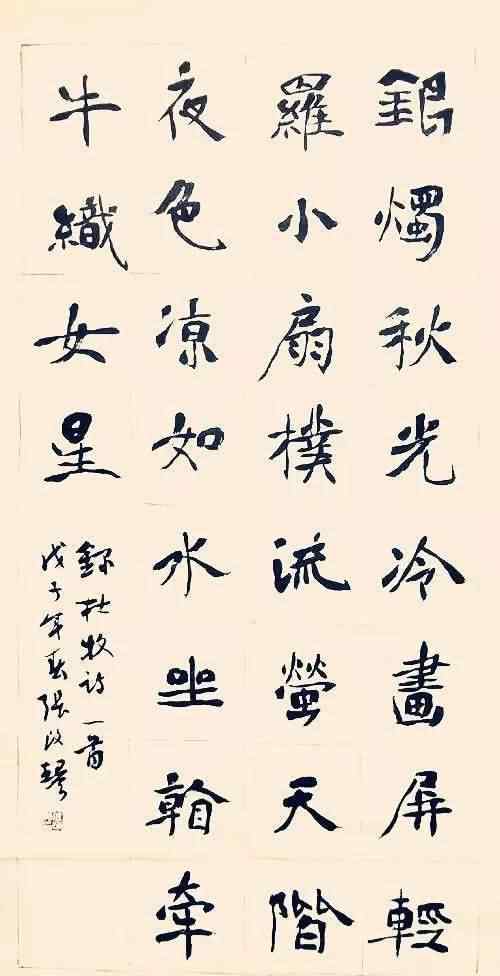 銀燭秋光冷畫屏輕
羅小扇撲流螢天階
夜色凉如水坐看牽
牛織女星
錄杜牧詩一首
戊子年春張改琴